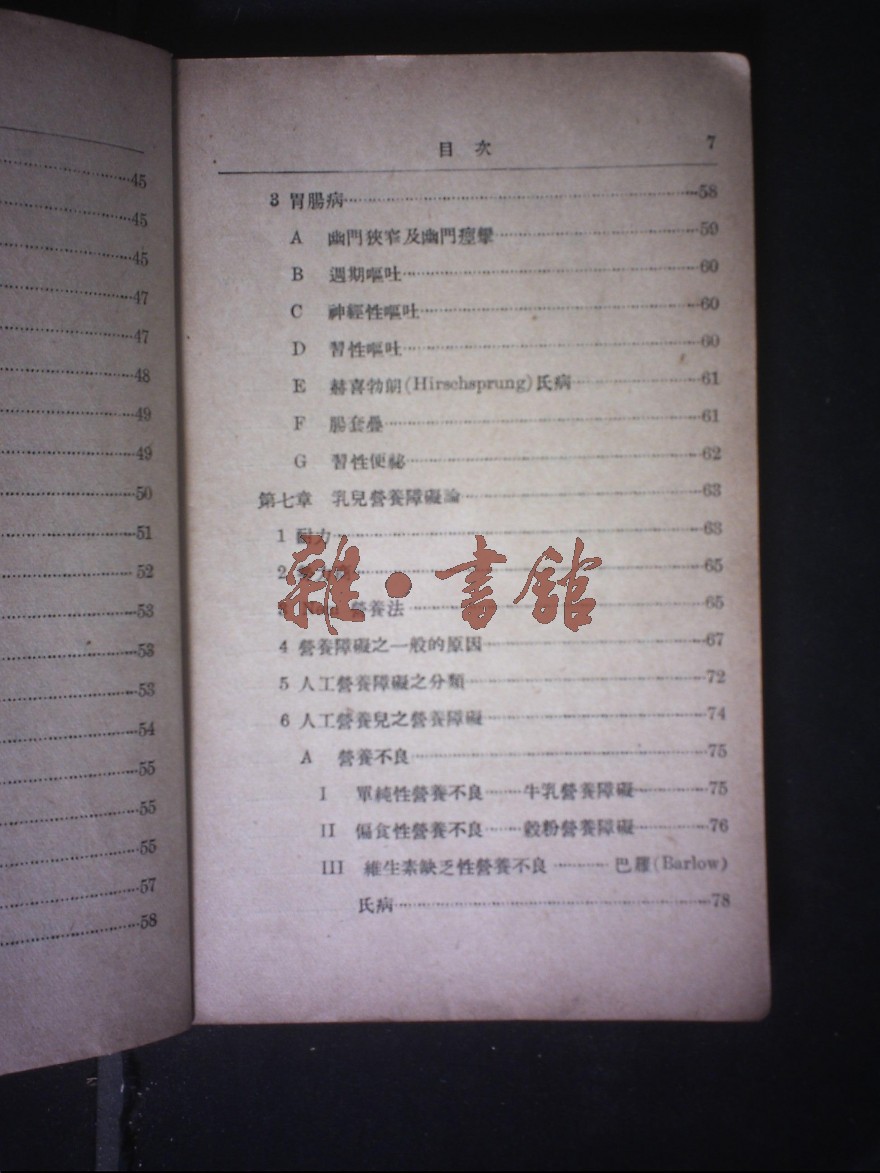 45
45
45
47
47
48
49
49
50
51
52
53
53
53
54
55
55
55
57
58
目次 7
3 胃腸病 58
A 幽門狹窄及幽門痙攣 59
B 週期嘔吐 60
C 神經性嘔吐 60
D 習性嘔吐 60
E 赫喜勃朗(Hirschsprung)氏病 61
F 腸套疊 61
G 習性便祕 62
第七章 乳兒營養障礙論 63
1 耐力 63
2 65
3 營養法 65
雜·書館
4 營養障礙之一般的原因 67
5 人工營養障礙之分類 72
6 人工營養兒之營養障礙 74
A 營養不良 75
I 單純性營養不良……牛乳營養障礙 75
II 偏食性營養不良……穀粉營養障礙 76
III 維生素缺乏性營養不良………巴羅(Barlow)
氏病 78